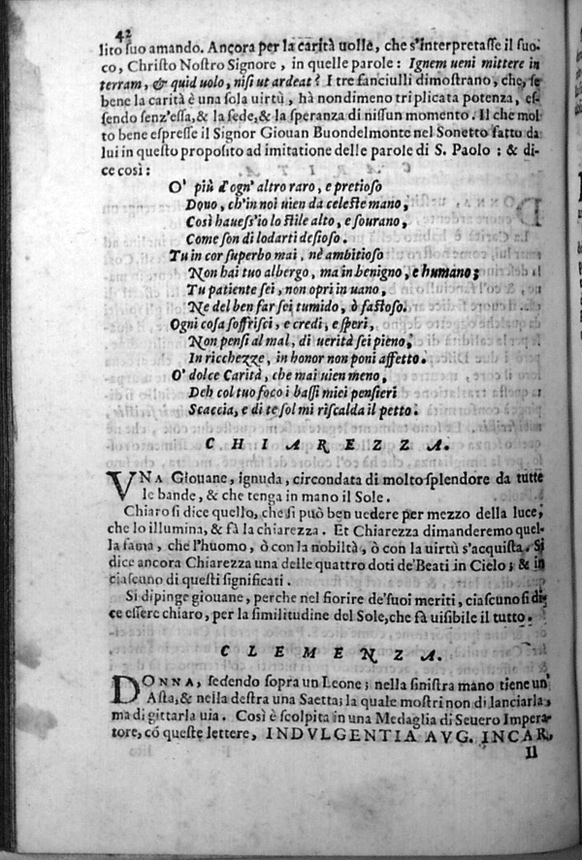 42
lito suo amando. Ancora per la carità uolle, che s'interpretasse il fuo-
co, Christo Nostro Signore, in quelle parole: Ignem ueni mittere in
terram, & quid uolo, nisi ut ardeat? I tre fanciulli dimostrano, che, se
bene la carità è una sola uirtù, hà nondimeno triplicata potenza, es-
sendo senz'essa, & la fede, & la speranza di nissun momento. Il che mol
to bene espresse il Signor Giouan Buondelmonte nel Sonetto fatto da
lui in questo proposito ad imitatione delle parole di S. Paolo; & di-
ce così:
O' più d'ogn' altro raro, e pretioso
Dono, ch'in noi uien da celeste mano,
Così hauess'io lo stile alto, e sourano,
Come son di lodarti desioso.
Tu in cor superbo mai, nè ambitioso
Non hai tuo albergo, ma in benigno, e humano;
Tu patiente sei, non opri in uano,
Ne del ben far sei tumido, ò fastoso.
Ogni cosa soffrisci, e credi, e speri,
Non pensi al mal, di uerità sei pieno,
In ricchezze, in honor non poni affetto.
O' dolce Carità, che mai uien meno,
Deh col tuo foco i bassi miei pensieri
Scaccia, e di te sol mi riscalda il petto.
CHIAREZZA.
VNA Giouane, ignuda, circondata di molto splendore da tutte
le bande, & che tenga in mano il Sole.
Chiaro si dice quello, che si può ben uedere per mezzo della luce,
che lo illumina, & fà la chiarezza. Et Chiarezza dimanderemo quel-
la fama, che l'huomo, ò con la nobiltà, ò con la uirtù s'acquista. Si
dice ancora Chiarezza una delle quattro doti de'Beati in Cielo; & in
ciascuno di questi significati.
Si dipinge giouane, perche nel fiorire de'suoi meriti, ciascuno si di-
ce essere chiaro, per la similitudine del Sole, che fà uisibile il tutto.
CLEMENZA.
DONNA, sedendo sopra un Leone; nella sinistra mano tiene un'
Asta, & nella destra una Saetta; la quale mostri non di lanciarla,
ma di gittarla uia. Così è scolpita in una Medaglia di Seuero Impera-
tore, có queste lettere, INDVLGENTIA AVG. INCAR,
Il